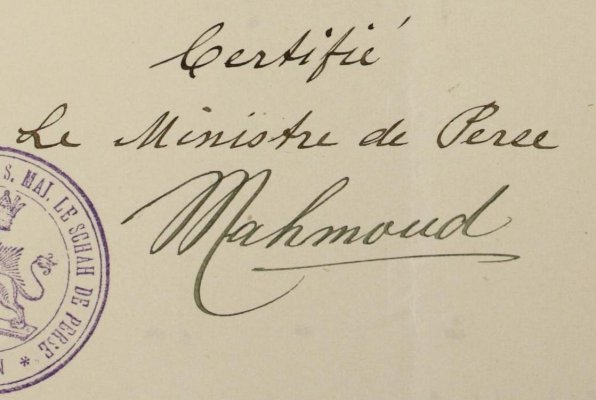 Certifié
Le Ministre de Perse
Mahmoud
S. MAJ. LE SCHAH DE PERSE *